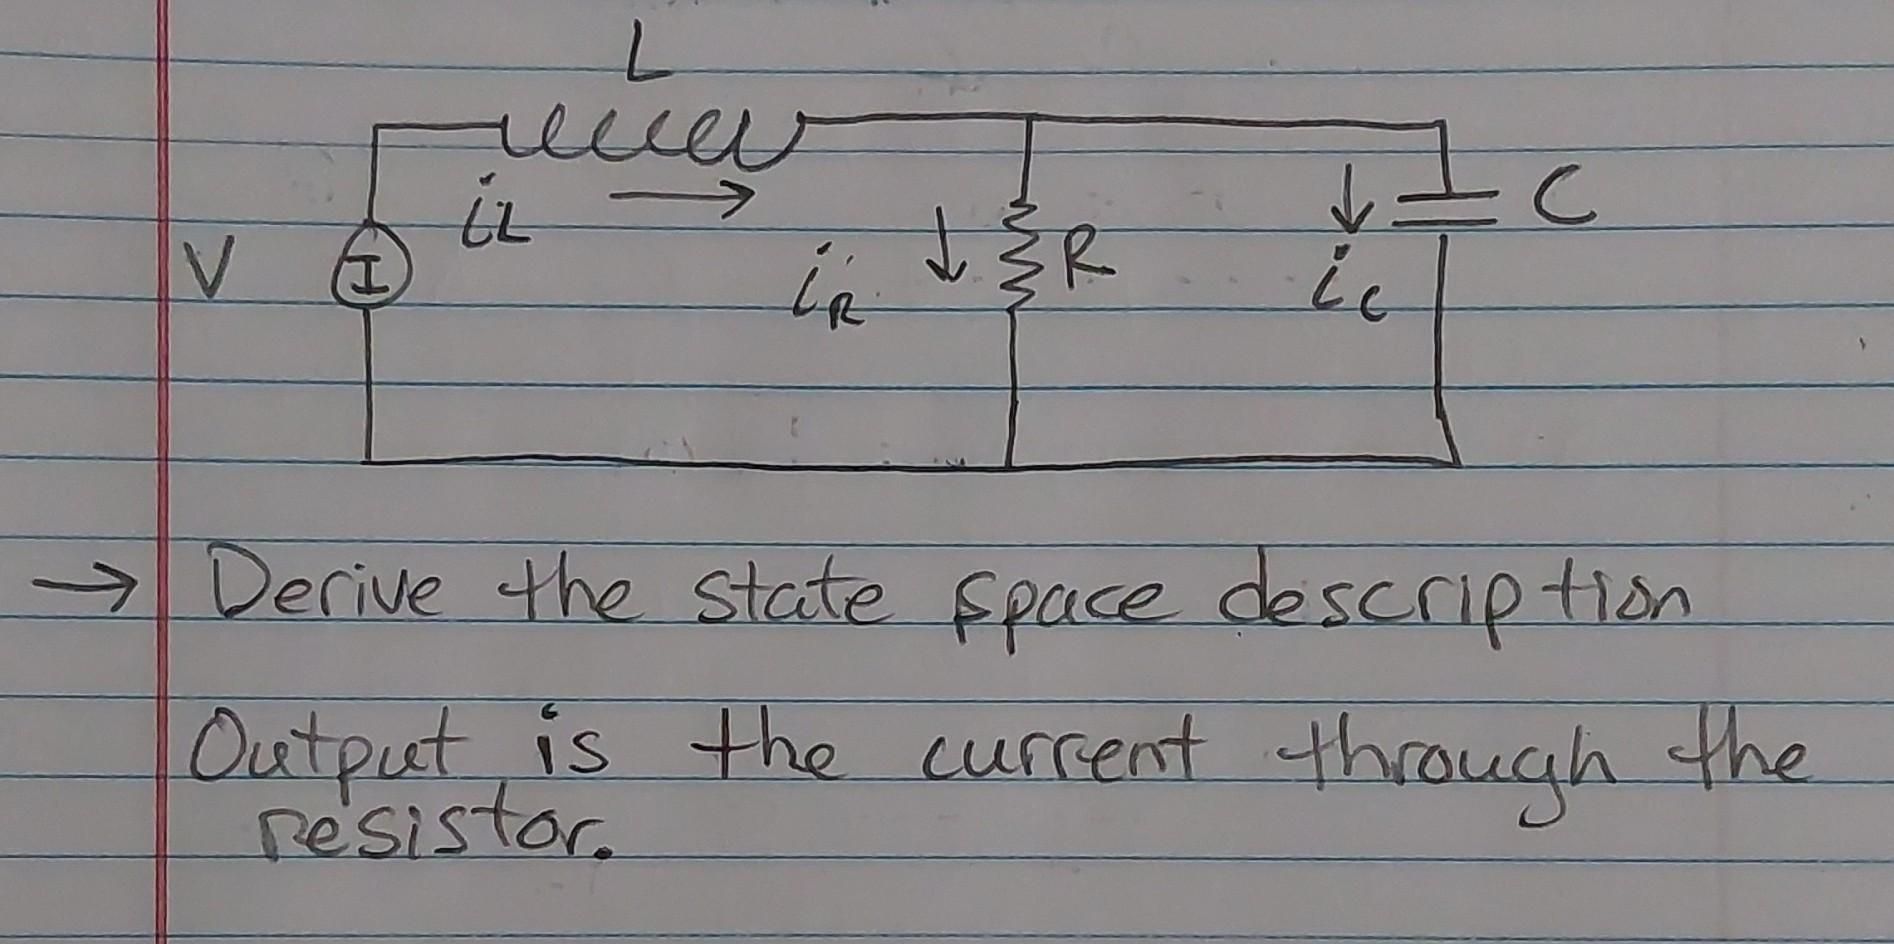 L
V
I
iL
iR
R
iC
C
→ Derive the state space description
Output is the current through the
resistor.